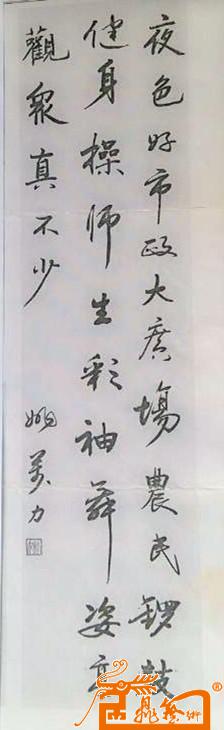 夜色好市政大廣場農民鑼鼓
健身操師生彩袖舞姿高
觀衆真不少
姚萬力